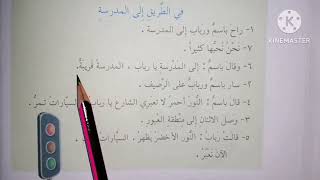 في الطَّريق إِلى المدرسة
١- راح باسمٌ ورباب إلى المدرسة .
٧- نَحْنُ نُحبُّها كثيراً .
٦- وقال باسمٌ : إلى المَدْرَسةِ يا رباب . المدرسةُ قريبةٌ .
٢- سار باسمٌ وربابُ على الرَّصيف .
٤- قال باسمٌ : النُّورُ أحمرُ لا تعبري الشارعَ يا رباب السَّياراتُ تمرُّ .
٣- وصل الاثنان إلى منطقة العُبور .
٥- قالت ربابُ : النُّور الأخضرُ يظهرُ . السَّيارات
الآن نَعْبُرُ .
KINEMASTER